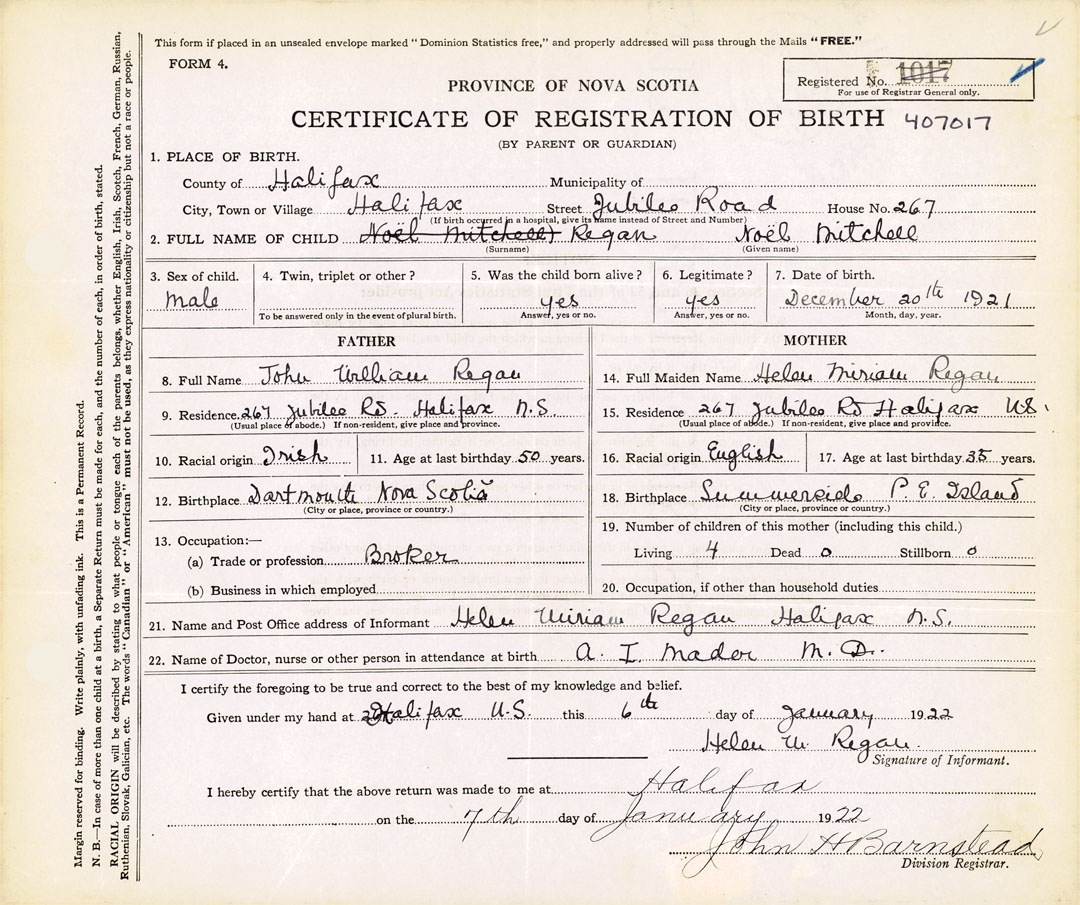 This form if placed in an unsealed envelope marked "Dominion Statistics free," and properly addressed will pass through the Mails "FREE."
FORM 4.
Registered No. 1017
For use of Registrar General only.
PROVINCE OF NOVA SCOTIA
CERTIFICATE OF REGISTRATION OF BIRTH 407017
(BY PARENT OR GUARDIAN)
1. PLACE OF BIRTH.
County of Halifax Municipality of
City, Town or Village Halifax Street Jubilee Road House No. 267
(If birth occurred in a hospital, give its name instead of Street and Number)
2. FULL NAME OF CHILD Noël Mitchell Regan Noël Mitchell
(Surname) (Given name)
3. Sex of child. 4. Twin, triplet or other? 5. Was the child born alive? 6. Legitimate? 7. Date of birth.
Male yes yes December 20th 1921
To be answered only in the event of plural birth. Answer, yes or no. Answer, yes or no. Month, day, year.
FATHER
8. Full Name John William Regan
9. Residence 267 Jubilee Rd. Halifax N.S.
(Usual place of abode.) If non-resident, give place and province.
10. Racial origin Irish 11. Age at last birthday 50 years.
12. Birthplace Dartmouth Nova Scotia
(City or place, province or country.)
13. Occupation:—
(a) Trade or profession Broker
(b) Business in which employed
MOTHER
14. Full Maiden Name Helen Miriam Regan
15. Residence 267 Jubilee Rd Halifax N.S.
(Usual place of abode.) If non-resident, give place and province.
16. Racial origin English 17. Age at last birthday 35 years.
18. Birthplace Summerside P. E. Island
(City or place, province or country.)
19. Number of children of this mother (including this child.)
Living 4 Dead 0 Stillborn 0
20. Occupation, if other than household duties
21. Name and Post Office address of Informant Helen Miriam Regan Halifax N.S.
22. Name of Doctor, nurse or other person in attendance at birth A. I. Mader M.D.
I certify the foregoing to be true and correct to the best of my knowledge and belief.
Given under my hand at Halifax N.S. this 6th day of January 1922
Helen M. Regan.
Signature of Informant.
I hereby certify that the above return was made to me at Halifax
on the 7th day of January 1922
John H Barnstead
Division Registrar.
Margin reserved for binding. Write plainly, with unfading ink. This is a Permanent Record.
N. B.—In case of more than one child at a birth, a Separate Return must be made for each, and the number of each, in order of birth, stated.
RACIAL ORIGIN will be described by stating to what people or tongue each of the parents belongs, whether English, Irish, Scotch, French, German, Russian,
Ruthenian, Slovak, Galician, etc. The words "Canadian" or "American" must not be used, as they express nationality or citizenship but not a race or people.